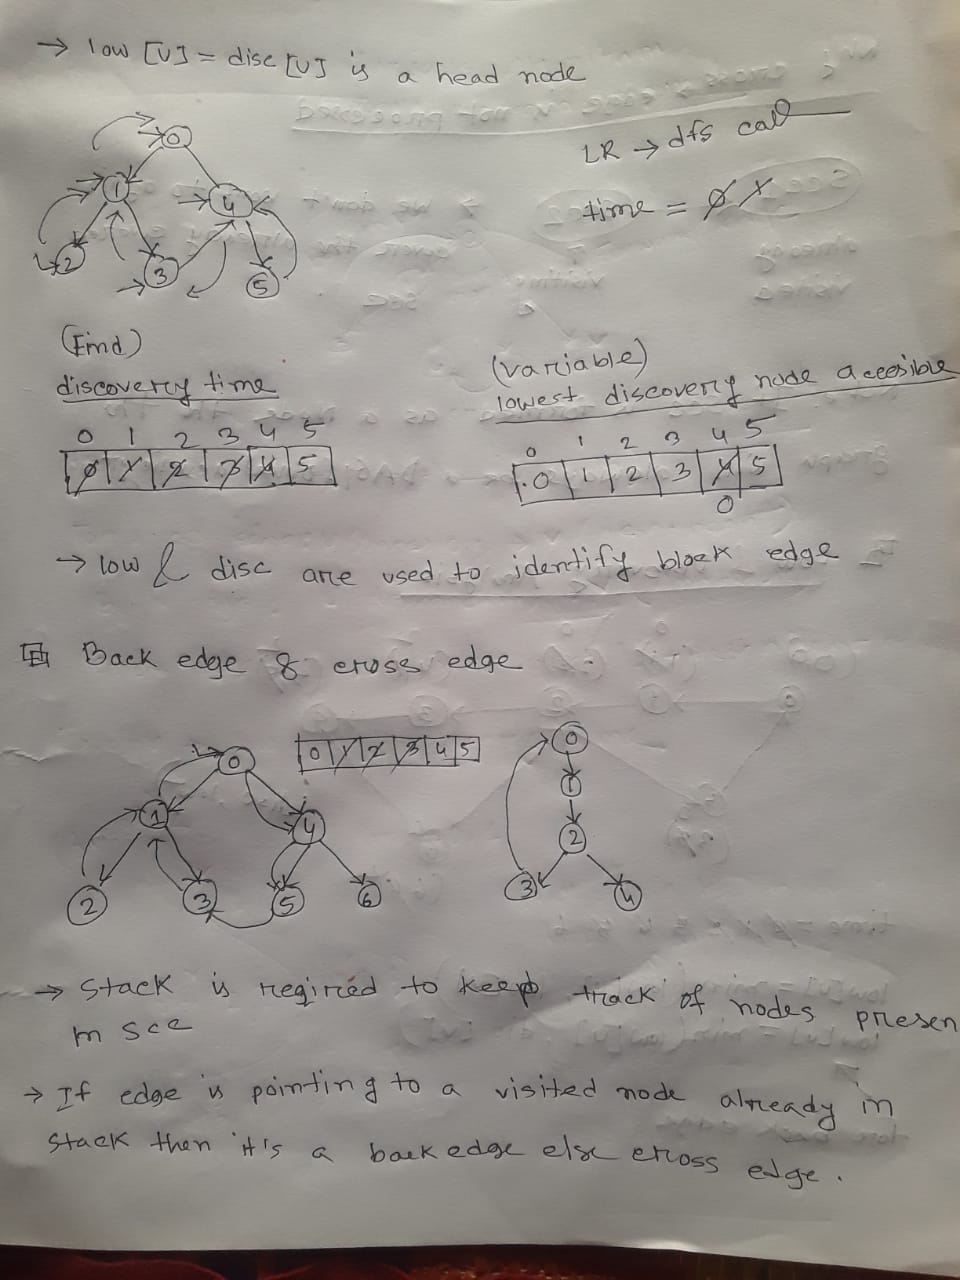 → low [U] = disc [U] is a head node
0
1
4
2
3
5
LR → dfs call
time = 0 1
(Find)
discovery time
0 1 2 3 4 5
0 1 2 3 4 5
(variable)
lowest discovery node accesible
0 1 2 3 4 5
0 1 2 3 4 5
0
→ low & disc are used to identify black edge
Back edge & cross edge
0 1 2 3 4 5
0
1
4
2
3
5
6
0
1
2
3
4
→ Stack is reqired to keep track of nodes presen
in scc
→ If edge is pointing to a visited node already in
stack then it's a back edge else cross edge.